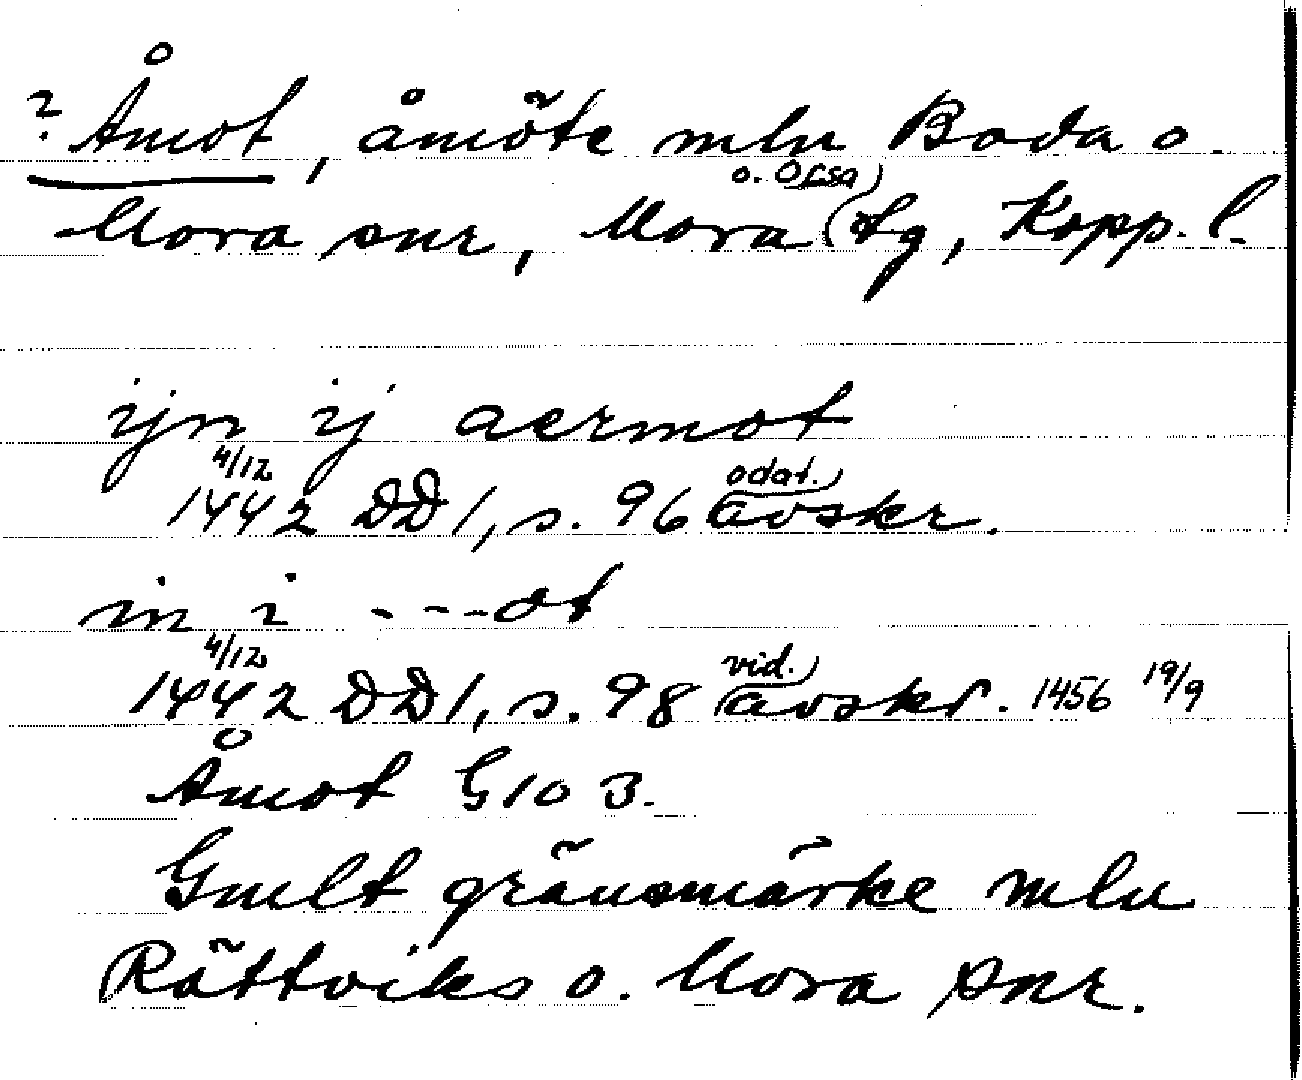 ? Åmot, åmöte mln Boda o.
Mora snr, Mora o. Orsa tg, Kopp. l.
ijn ij aermot
1442 4/12 DD 1, s. 96 odat. avskr.
in i - - - ot
1442 4/12 DD 1, s. 98 vid. avskr. 1456 19/9
Åmot G 10 3.
Gmlt gränsmärke mln
Rättviks o. Mora snr.